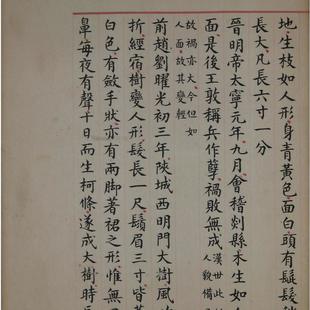 地生枝如人形身青黃色面白頭有髭髮
長大凡長六寸一分
晉明帝太寧元年九月會稽剡縣木生如人
面是後王敦稱兵作孽禍敗無成漢世此
人貌備
故禍亦大今但如
人面故其變輕
前趙劉曜光初三年陝城西明門大樹風
折經宿樹變人形髮長一尺鬚眉三寸皆
白色有斂手狀亦有兩脚著裙之形惟無
鼻每夜有聲十日而生柯條遂成大樹時